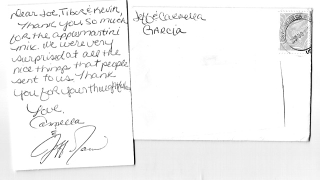 Dear Joe, Tibor & Kevin,
Thank you so much
for the appomartini
mix. We were very
surprised at all the
nice things that people
sent to us. Thank
you for your
Love,
Carmella
Jeff & Carmella
Garcia